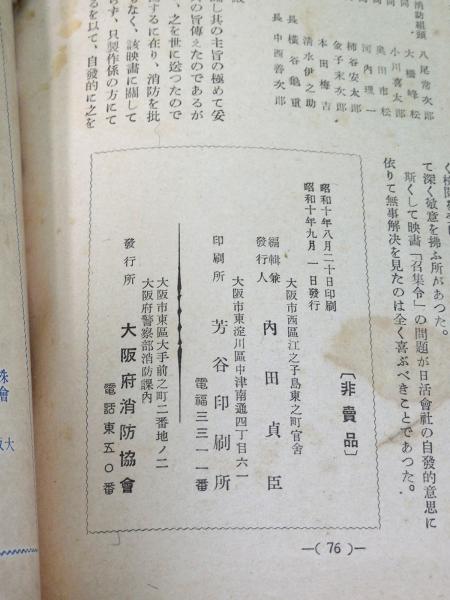 く検閲を
て深く敬意を拂ふ所があつた。
斯くして映畫「召集令」の問題が日活會社の自發的意思に
依りて無事解決を見たのは全く喜ぶべきことであつた。
消防組頭 八尾常次郎
大橋峰松
同 小川喜太郎
同 奥田市松
河内理一
柿谷安太郎
金子末次郎
本田梅吉
清水伊之助
長 横谷亀重
長 中西善次郎
し其の旨の極めて妥
の旨傳えたのであるが
、之を世に送つたので
するに在り、消防を批
もなく、該映畫に關して
らず、只製作係の方にて
るを以て、自發的に之を
〔非賣品〕
昭和十年八月二十日印刷
昭和十年九月一日發行
大阪市西區江之子島東之町官舍
編輯兼
發行人 內田貞臣
大阪市東淀川區中津南通四丁目六一
印刷所 芳谷印刷所
電福三三一一番
大阪市東區大手前之町二番地ノ二
大阪府警察部消防課內
發行所 大阪府消防協會
電話東五〇番
—( 76 )—